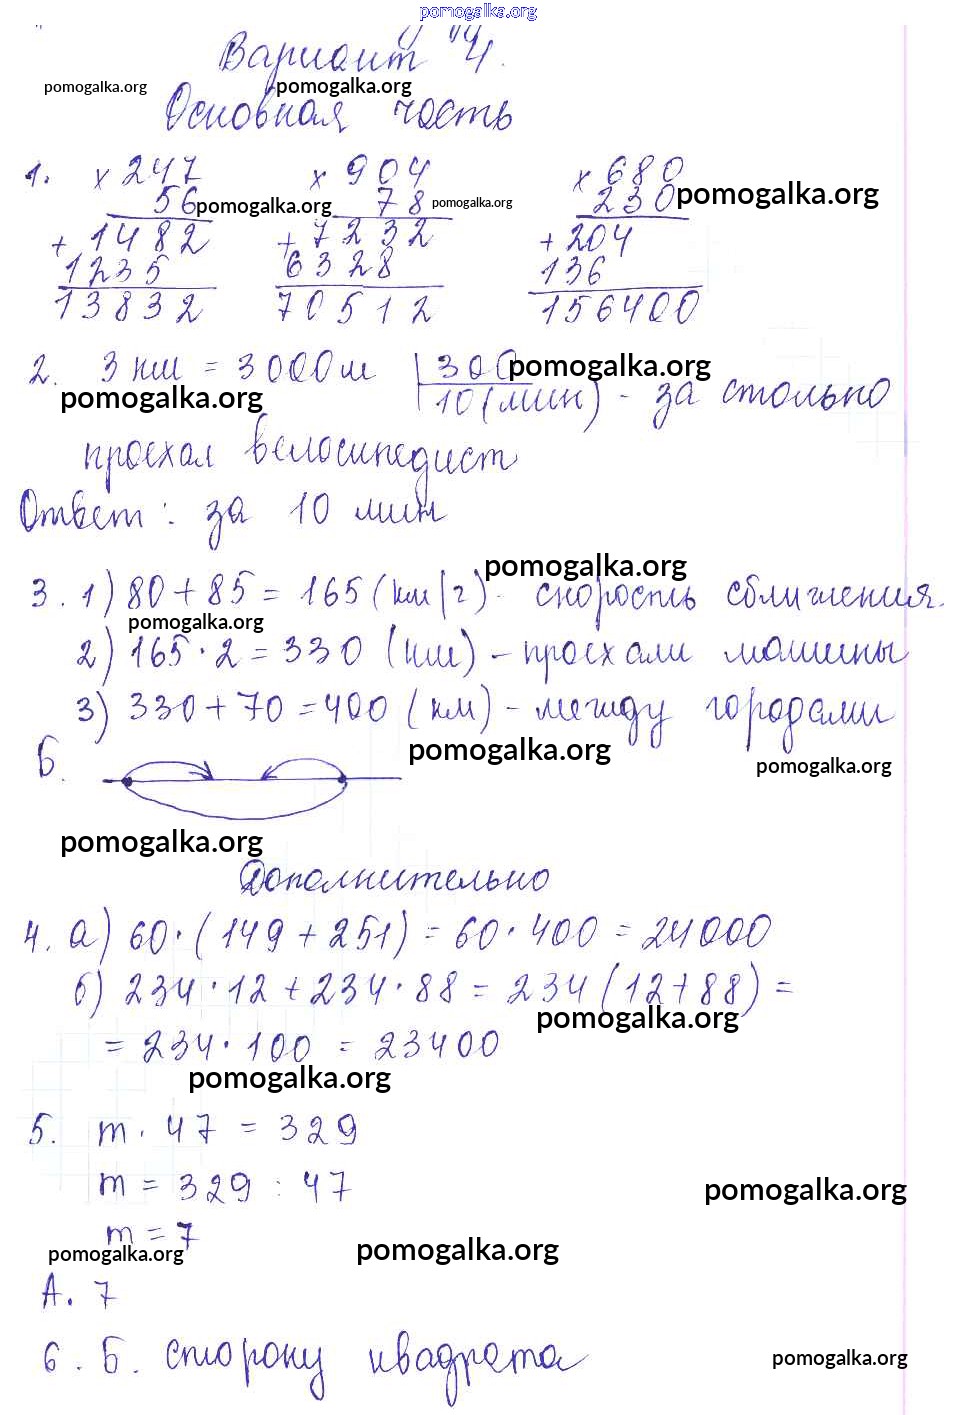 pomogalka.org
Вариант 4.
pomogalka.org pomogalka.org
Основная часть
1. × 247 × 904 × 680
56 78 230
pomogalka.org pomogalka.org pomogalka.org
+ 1482 + 7232 + 204
1235 6328 136
13832 70512 156400
2. 3 км = 3000 м | 300
pomogalka.org
10 (мин) - за столько
pomogalka.org
проехал велосипедист
Ответ: за 10 мин
pomogalka.org
3. 1) 80 + 85 = 165 (км/ч) - скорость сближения.
pomogalka.org
2) 165 · 2 = 330 (км) - проехали машины
3) 330 + 70 = 400 (км) - между городами
pomogalka.org
Б.
pomogalka.org
pomogalka.org
Дополнительно
4. а) 60 · (149 + 251) = 60 · 400 = 24000
б) 234 · 12 + 234 · 88 = 234 (12 + 88) =
pomogalka.org
= 234 · 100 = 23400
pomogalka.org
5. m · 47 = 329
m = 329 : 47
pomogalka.org
m = 7
pomogalka.org pomogalka.org
А. 7
6. Б. сторону квадрата
pomogalka.org